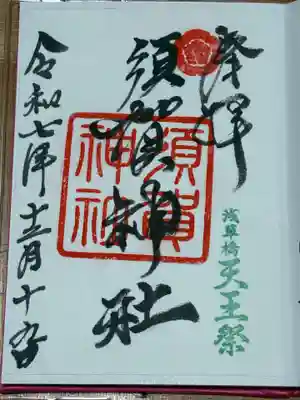 奉拝
浅草橋
天王祭
須賀神社
須賀神社
令和七年十二月十九日